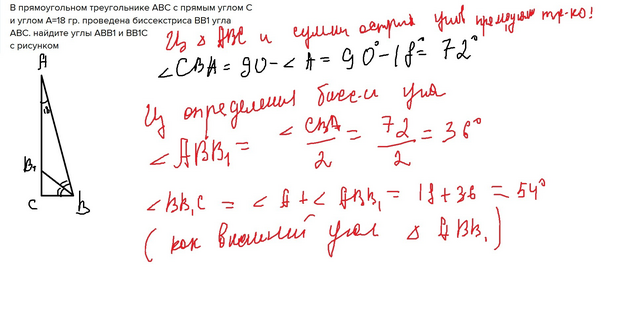 В прямоугольном треугольнике ABC с прямым углом C
и углом A=18 гр. проведена биссектриса BB1 угла
ABC. найдите углы ABB1 и BB1C
с рисунком
Из △ ABC и суммы острых углов прямоуг тр-ко!
∠CBA = 90 - ∠A = 90° - 18° = 72°
Из определения бисс-и угла
∠ABB₁ = ∠CBA/2 = 72/2 = 36°
∠BB₁C = ∠A + ∠ABB₁ = 18 + 36 = 54°
(как внешний угол △ ABB₁)
A
18
B₁
C
B